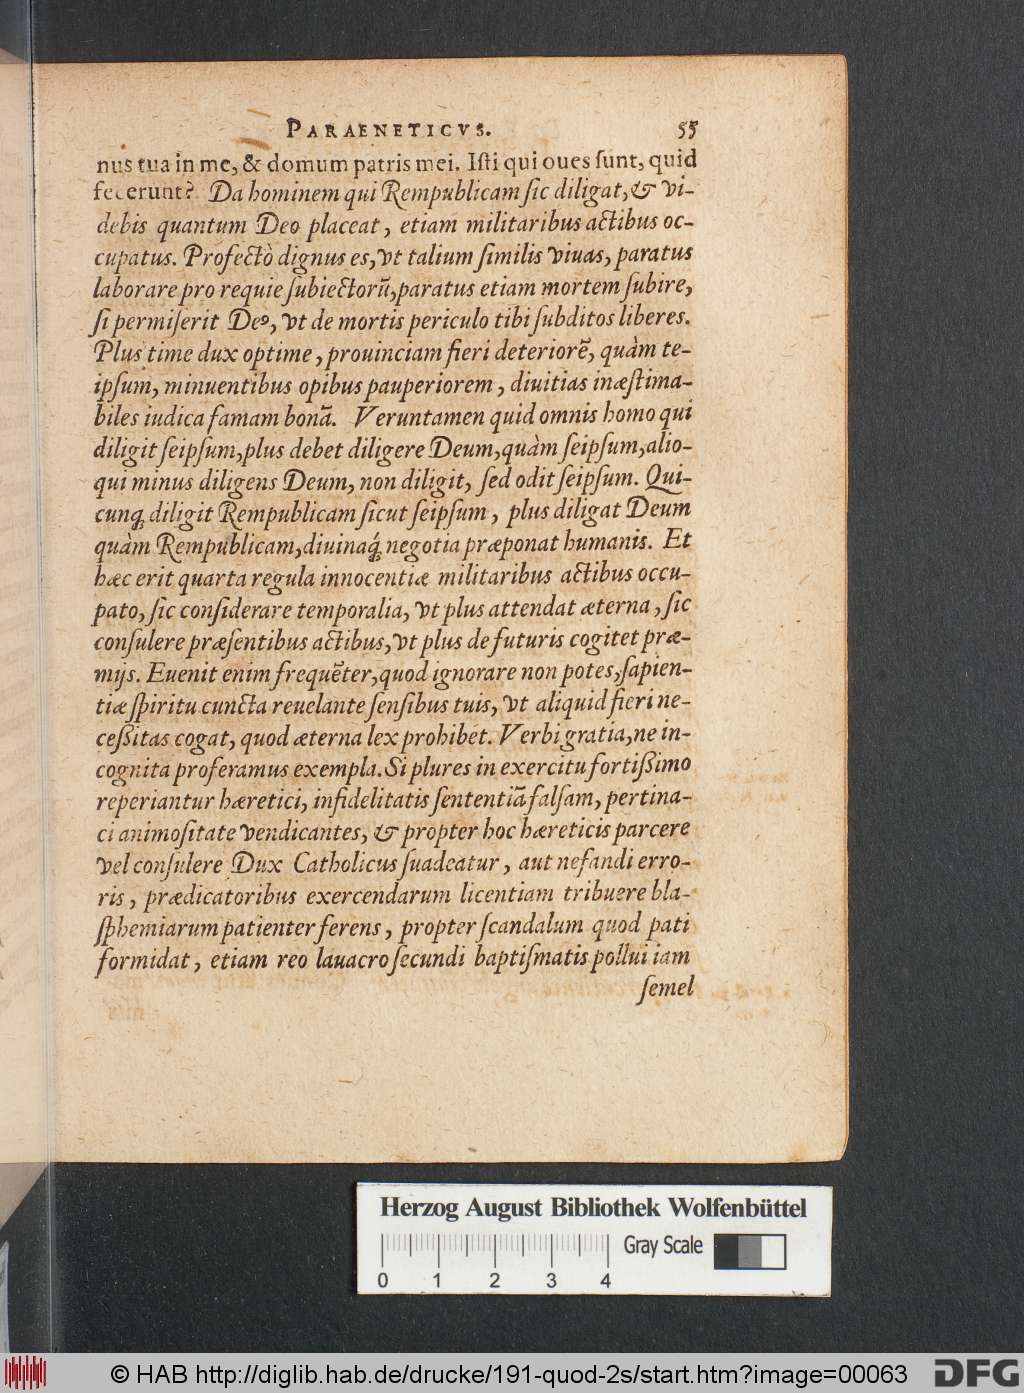 PARAENETICVS. 55
nus tua in me, & domum patris mei. Iſti qui oues ſunt, quid
fecerunt? Da hominem qui Rempublicam ſic diligat, & vi-
debis quantum Deo placeat, etiam militaribus actibus oc-
cupatus. Profectò dignus es, vt talium ſimilis viuas, paratus
laborare pro requie ſubiectorū, paratus etiam mortem ſubire,
ſi permiſerit Deo, vt de mortis periculo tibi ſubditos liberes.
Plus time dux optime, prouinciam fieri deteriorē, quàm te-
ipſum, minuentibus opibus pauperiorem, diuitias inæſtima-
biles iudica famam bonā. Veruntamen quid omnis homo qui
diligit ſeipſum, plus debet diligere Deum, quàm ſeipſum, alio-
qui minus diligens Deum, non diligit, ſed odit ſeipſum. Qui-
cunq́ diligit Rempublicam ſicut ſeipſum, plus diligat Deum
quàm Rempublicam, diuinaq́ negotia præponat humanis. Et
hæc erit quarta regula innocentiæ militaribus actibus occu-
pato, ſic conſiderare temporalia, vt plus attendat æterna, ſic
conſulere præſentibus actibus, vt plus de futuris cogitet præ-
mijs. Euenit enim frequēter, quod ignorare non potes, ſapien-
tiæ ſpiritu cuncta reuelante ſenſibus tuis, vt aliquid fieri ne-
ceßitas cogat, quod æterna lex prohibet. Verbi gratia, ne in-
cognita proferamus exempla. Si plures in exercitu fortißimo
reperiantur hæretici, infidelitatis ſententiā falſam, pertina-
ci animoſitate vendicantes, & propter hoc hæreticis parcere
vel conſulere Dux Catholicus ſuadeatur, aut nefandi erro-
ris, prædicatoribus exercendarum licentiam tribuere bla-
ſphemiarum patienter ferens, propter ſcandalum quod pati
formidat, etiam reo lauacro ſecundi baptiſmatis pollui iam
ſemel
Herzog August Bibliothek Wolfenbüttel
Gray Scale
0 1 2 3 4
© HAB http://diglib.hab.de/drucke/191-quod-2s/start.htm?image=00063
DFG